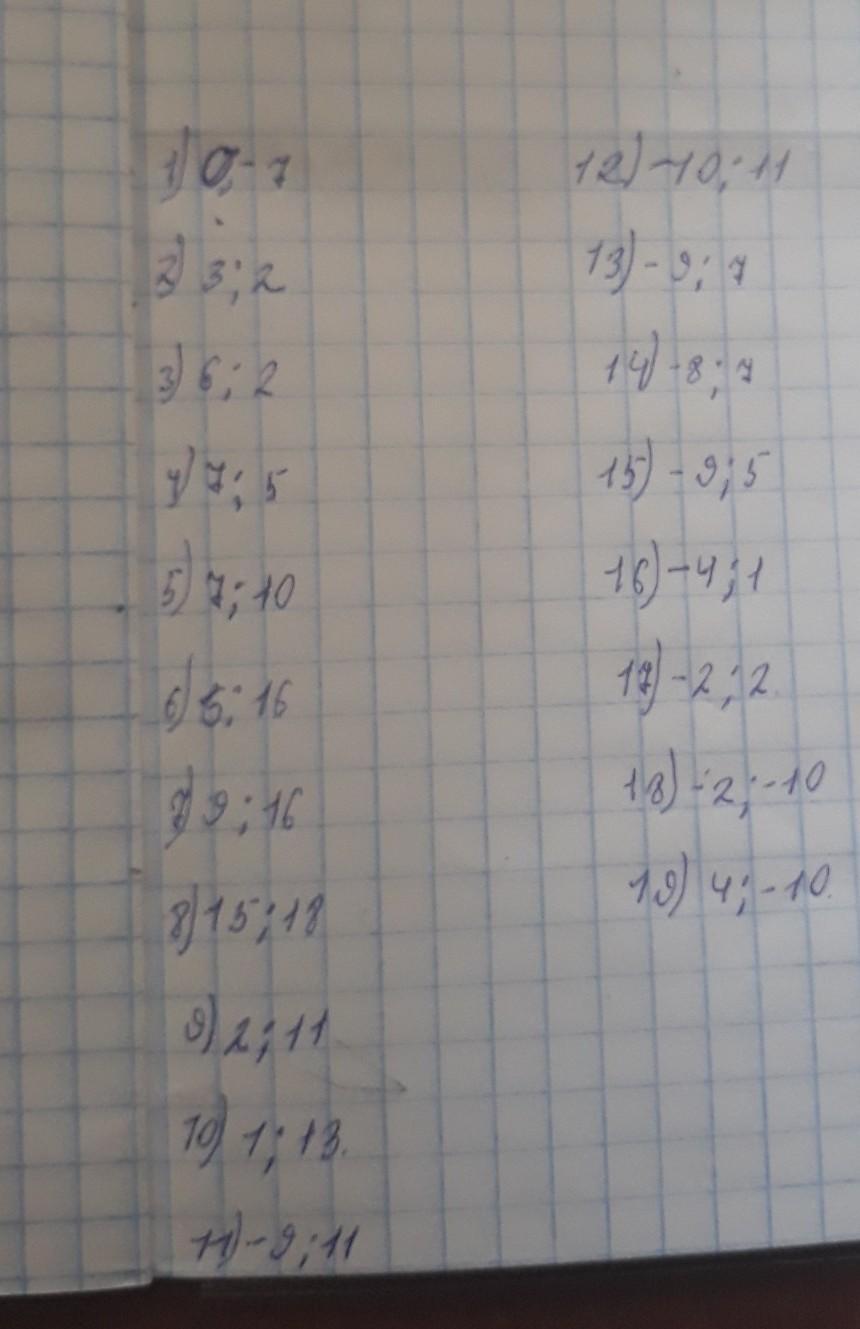 1) 0; -7
2) 3; 2
3) 6; 2
4) 7; 5
5) 7; 10
6) 5; 16
7) 9; 16
8) 15; 18
9) 2; 11
10) 1; 13.
11) -9; 11
12) -10; 11
13) -9; 7
14) -8; 7
15) -9; 5
16) -4; 1
17) -2; 2.
18) -2; -10
19) 4; -10.